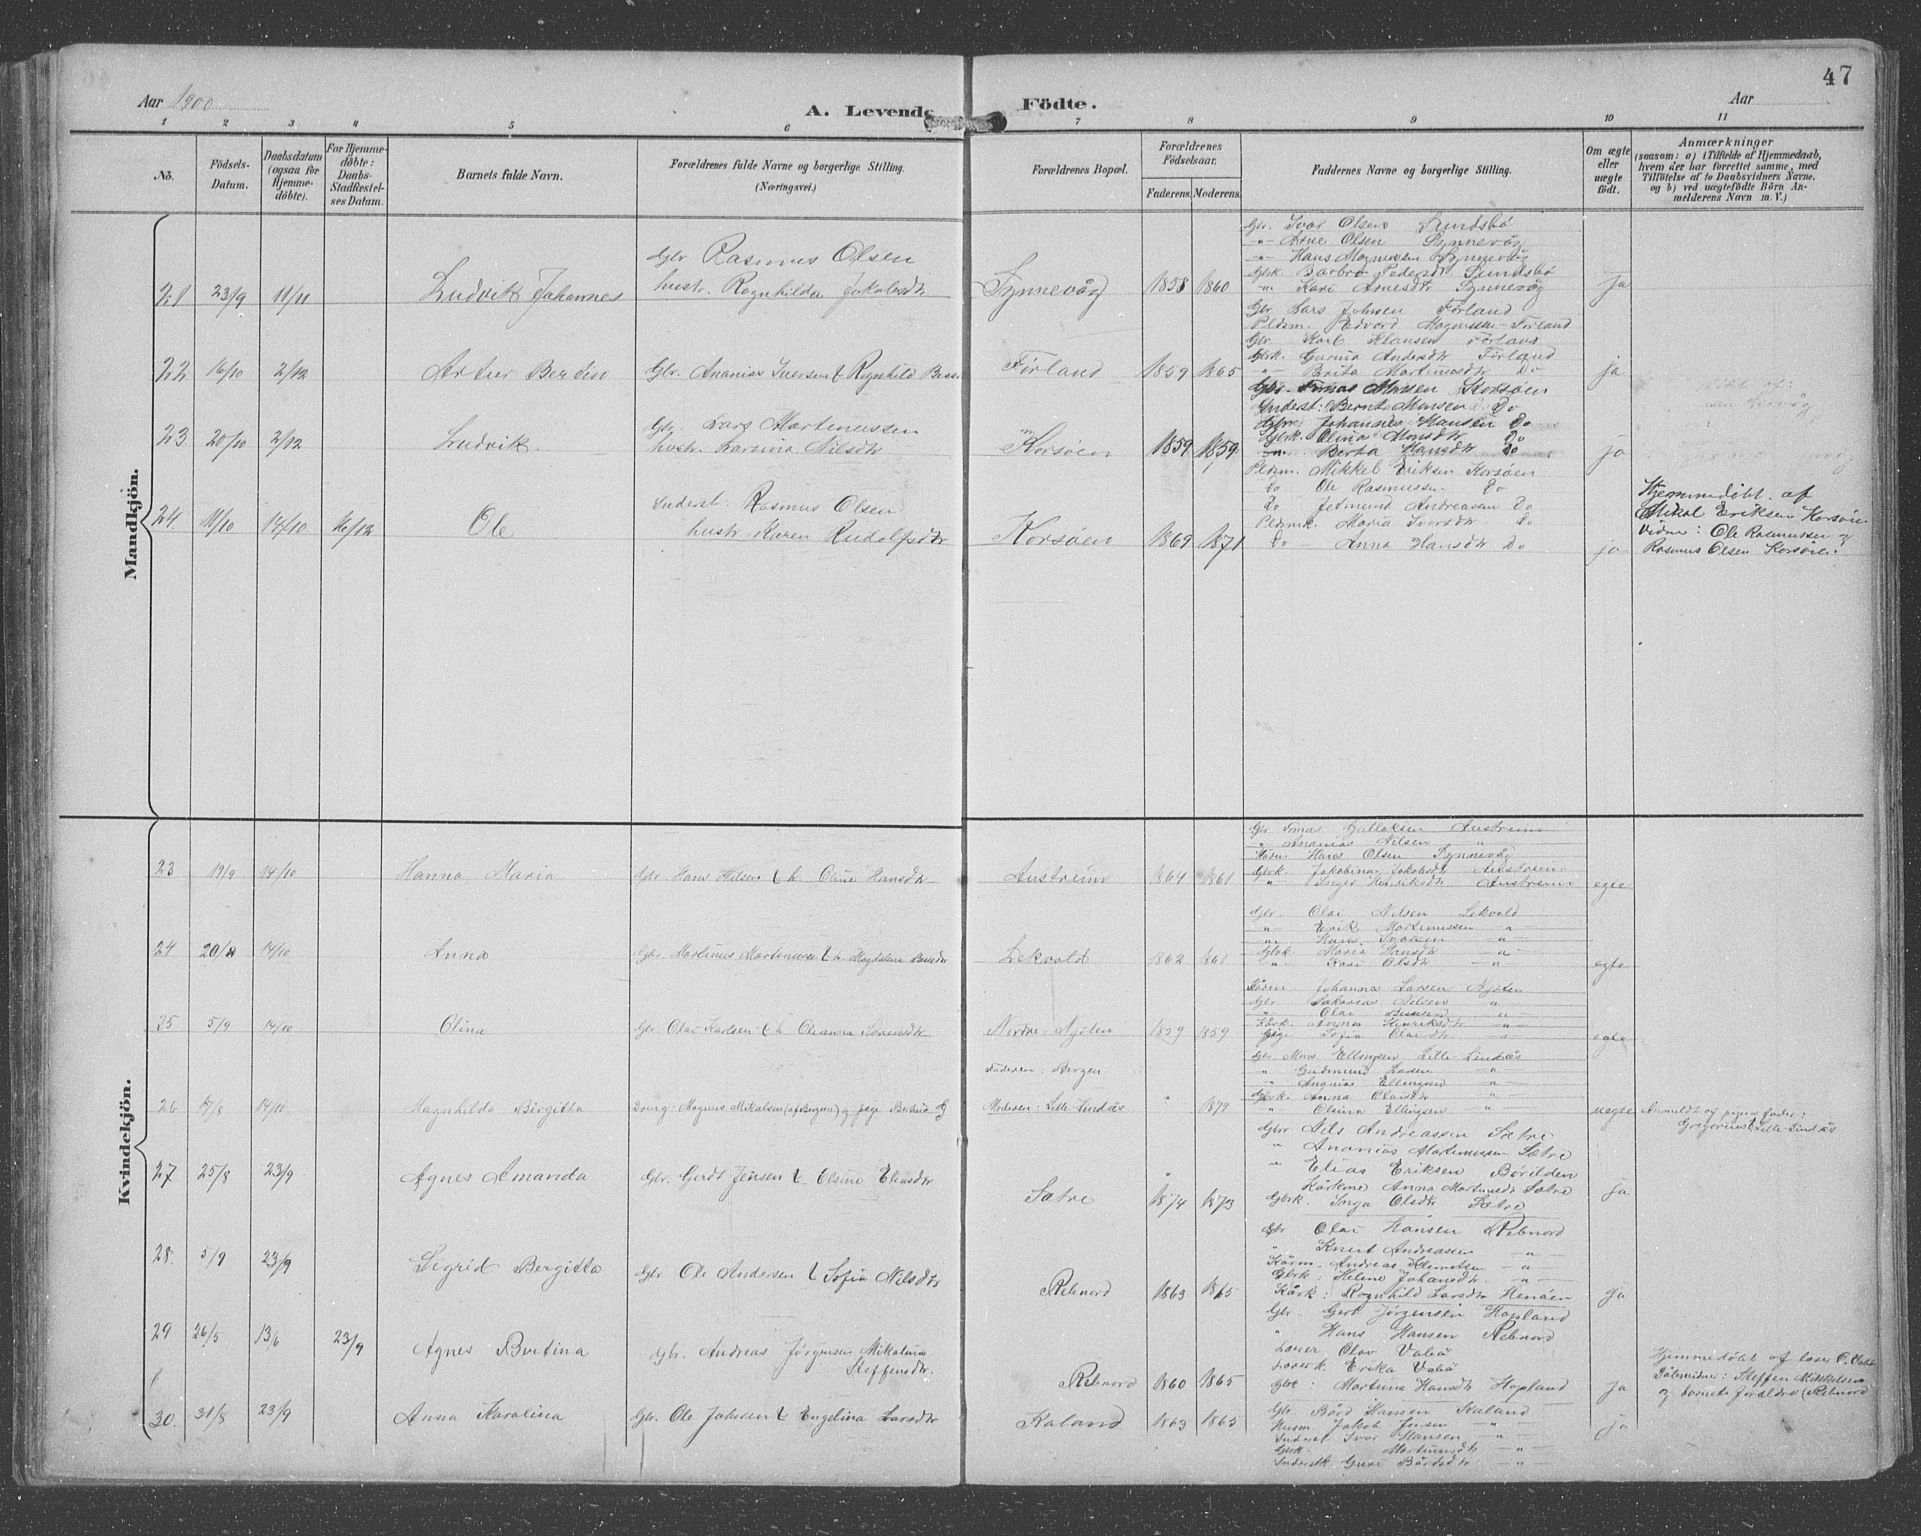 47
Aar 1900
A. Levende Födte.
Aar
1 2 3 4 5 6 7 8 9 10 11
No.
Födsels-Datum.
Daabsdatum (ogsaa for Hjemme-døbte).
For Hjemme-døbte: Daabs-Stadfæstel-ses Datum.
Barnets fulde Navn.
Forældrenes fulde Navne og borgerlige Stilling. (Næringsvei.)
Forældrenes Bopæl.
Forældrenes Födselsaar.
Faderens. Moderens.
Faddernes Navne og borgerlige Stilling.
Om ægte eller uægte født.
Anmærkninger
(saasom: a) i Tilfælde af Hjemmedaab, hvem der har forrettet samme, med Tilföielse af to Daabsvidners Navne. og b) ved uægtefödte Börn An-melderens Navn m. V.)
Mandkjön.
Gbr. Ivar Olsen Sundsbö
-"- Arne Olsen Synnevåg
-"- Hans Magnussen Synnevåg
Gbrk. Barbro Pedersdt Sundsbö
" Kari Arnesdtr Synnevåg
21 23/9 11/11 Ludvik Johannes
Gbr Rasmus Olsen
hustr. Ragnhilda Jakobsdtr
Synnevåg 1858 1860 ja
Gbr. Lars Johnsen Förland
Pldsm. Edvard Magnussen Förland
Gbr. Karl Klausen Förland
Gbrk. Gurina Andersdtr Förland
-"- Brita Martinusdtr Do
22 16/10 2/12 Artur Bertin
Gbr. Ananias Iversen & Ragnhild
Førland 1859 1865 ja
Gbr. Tomas Monsen Korsöen
Inderst: Bernt Monsen Do
Gbr. Johannes Hansen Do
Gbrk. Olina Monsdtr Do
-"- Berta Hansdtr Do
23 20/10 2/12 Ludvik.
Gbr. Lars Martinussen
hustr. Larsina Nilsdtr
Korsöen 1859 1859 ja
Pldsm. Mikkel Eriksen Korsöen
Do Ole Rasmussen Do
Do Jetmund Andreassen Do
Pldsmk. Maria Iversdtr Do
Do Anna Hansdtr Do
24 11/10 14/10 16/12 Ole
Inderst. Rasmus Olsen
hustr. Karen Rudolfsdtr
Korsöen 1869 1871 ja
Hjemmedöbt af
Mikal Eriksen Korsöen
Vidne: Ole Rasmussen og
Rasmus Olsen Korsöen.
Kvindekjön.
Gbr Tomas Gullaksen Austreim
" Ananias Nilsen "
Hans Olsen Synnevåg
Gbrk. Jakobina Jakobsdtr Austreim
" Inger Henriksdtr Austreim
23 19/9 14/10 Hanna Maria
Gbr. Hans Nilsen & h. Oline Hansdtr
Austreim 1864 1861 egte
Gbr. Olai Nilsen Lekvold
" Erik Martinussen -"-
-"- Hans Ivarsen -"-
Gbrk. Maria Hansdtr -"-
-"- Kari Olsdtr -"-
24 20/8 14/10 Anna
Gbr Martinus Martinussen & h. Magdalena
Lekvold 1862 1861 egte
Johannes Larsen Njöten
Gbr. Sakarias Nilsen "
" Olai -"-
Kårk. Agnes Henriksdtr -"-
Pige Sofia Olaisdtr -"-
25 5/9 14/10 Olina
Gbr Olai Karlsen & h. Oleanna Sörensdtr
Nordre-Njöten 1859 1859 egte
Gbr. Mons Ellingsen Lille-Lindås
" Gudmund Larsen "
" Ananias Ellingsen "
Gbrk. Anna Olaisdtr "
" Olina Ellingsen -"-
26 17/8 14/10 Magnhilda Birgitta
Magnus Mikalsen (af Bergen) og pige
Faderen: Bergen
Moderen: Lille Lindås " 1879 uegte
Anmeldt af pigens fader:
Gregorius Lille-Lindås
Gbr Nils Andreassen Sætre
" Ananias Martinussen Sætre
" Elias Eriksen Böröilden
Kårkone Anna Martinusdtr Sætre
Gbrk. Inga Olsdtr Sætre
27 25/8 23/9 Agnes Amanda
Gbr. Gerdt Jensen & Olsine Eliasdtr
Sætre 1874 1873 ja
Gbr Olai Hansen Rebnord
" Knut Andreassen -"-
Kårm. Andreas Klemetsen -"-
Gbrk: Helene Johansdtr -"-
Kårk: Ragnhild Larsdtr Henöen
28. 5/9 23/9 Sigrid Bergitta
Gbr Ole Andersen & Sofia Nilsdtr
Rebnord 1863 1865 ja
Gbr. Gert Jörgensen Hopland
" Hans Hansen Rebnord
Lærer Olav Valsö
Lærerk. Erika Valsö
Gbrk: Martina Hansdtr Hopland
29 26/5 13/6 23/9 Agnes Bertina
Gbr. Andreas Jörgensen Mikalina
Steffensdtr.
Rebnord 1860 1865 ja
Hjemmedöbt af lærer O. Valsö
Dåbsvidner: Steffen Mikkelsen
og barnets forældre (Rebnord
Gbr Bård Hansen Kaland
Husm Jakob Jonsen "
Inderst Ivar Hansen -"-
Gbrk. Martinusdtr -"-
Inderstk. Guri Bårdsdtr -"-
30. 31/8 23/9 Anna Karolina
Gbr. Ole Johnsen & Engelina Larsdtr
Kaland 1863 1865 ja